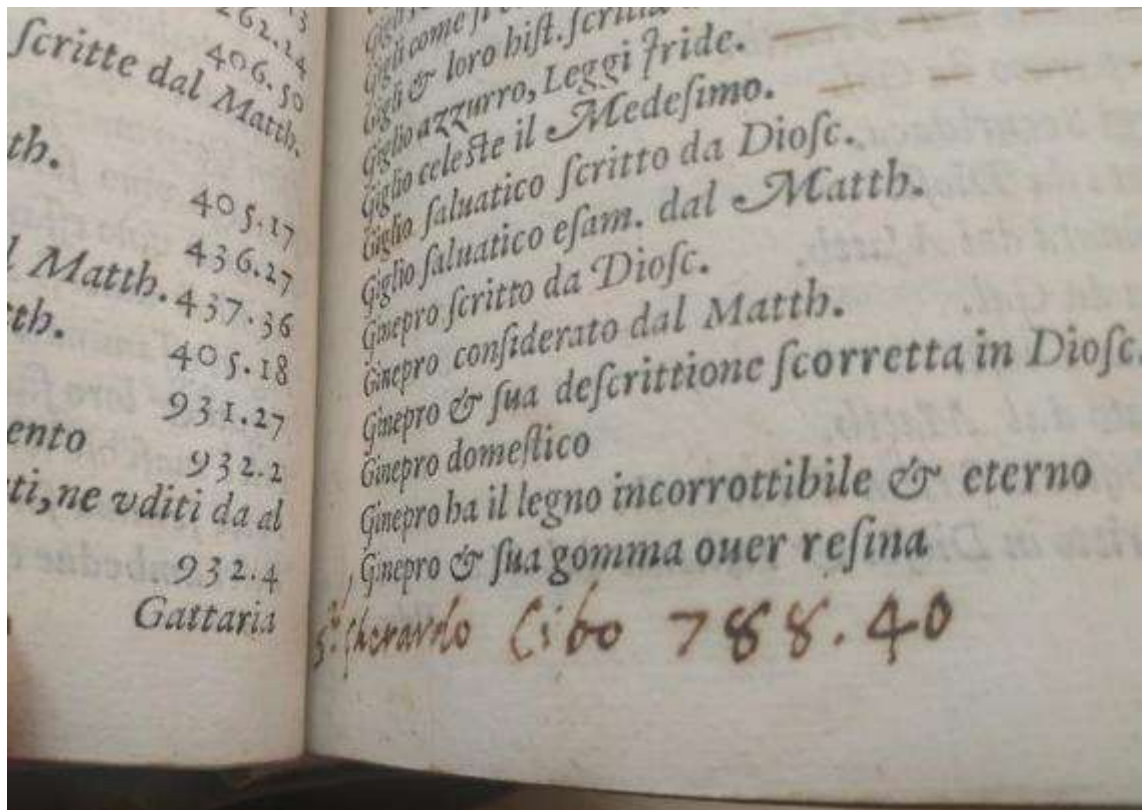 62.24
406.50
ſcritte dal Matth.
th.
405.17
436.27
l Matth. 437.36
tth.
405.18
931.27
ento
932.2
ti, ne vditi da al
932.4
Gattaria
Gigli come ſi
Gigli & loro hiſt. ſcritta
Giglio azzurro, Leggi Iride.
Giglio celeſte il Medeſimo.
Giglio ſaluatico ſcritto da Dioſc.
Giglio ſaluatico eſam. dal Matth.
Ginepro ſcritto da Dioſc.
Ginepro conſiderato dal Matth.
Ginepro & ſua deſcrittione ſcorretta in Dioſc.
Ginepro domeſtico
Ginepro ha il legno incorrottibile & eterno
Ginepro & ſua gomma ouer reſina
Gherardo Cibo 788.40